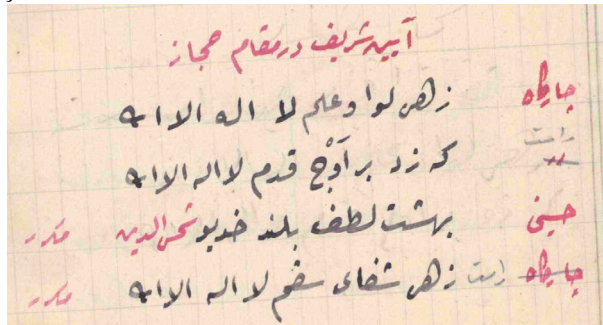 آیین شریف در مقام حجاز
چارگاه زهی لوا و علم لا اله الا الله
راست که زد بر اَوْجِ قدم لا اله الا الله
حسینی بهشت لطف بلند خدیو شمس الدین مکرر
چارگاه راست زهی شفای سقم لا اله الا الله مکرر